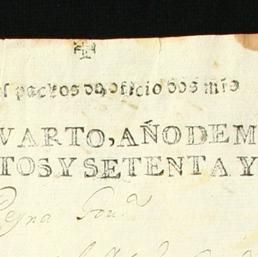 pachos de oficio dos mrs
VARTO, AÑO DE M
TOS Y SETENTA Y
Reyna Gou.